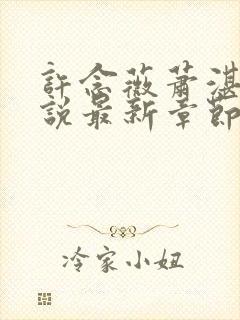 許念薇蕭湛
說最新章節
冷家小妞